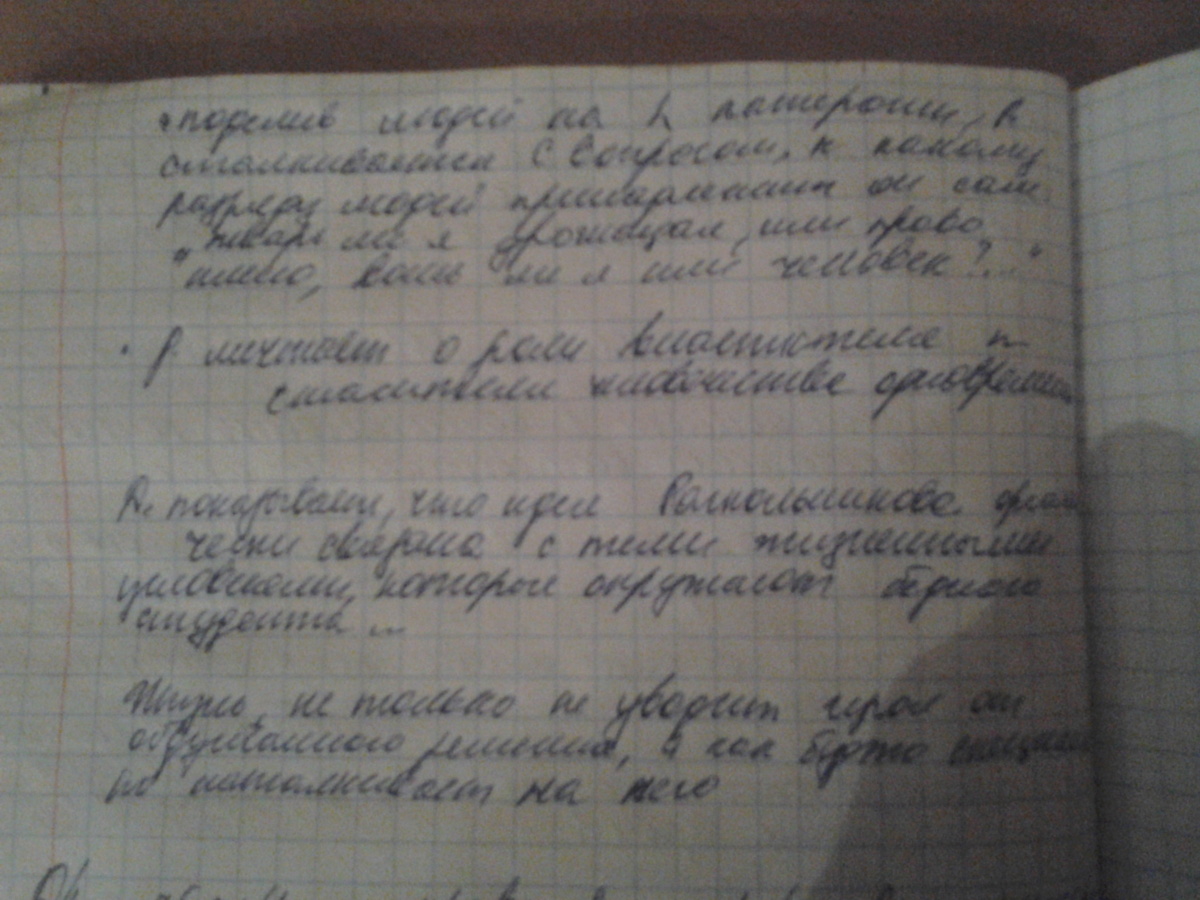 • поделив людей на 2 категории, Р.
сталкивается с вопросом, к какому
разряду людей принадлежит он сам
"тварь ли я дрожащая, или право
имею, вошь ли я или человек?..."
• Р мечтает о роли властителя и
спасителя человечества одновремен
Д. показывает, что идея Раскольникова орган
чески связана с теми жизненными
условиями, которые окружают бедного
студента...
Жизнь, не только не уводит героя от
обдуманного решения, а как будто специаль
но наталкивает на него